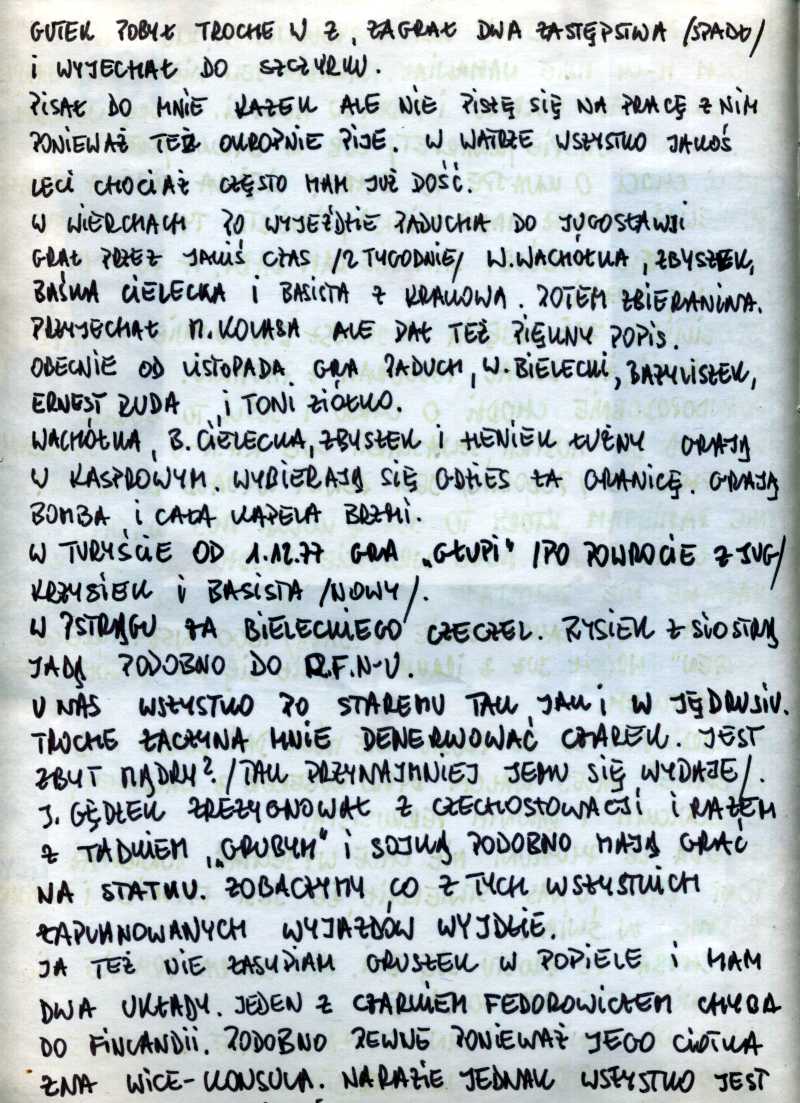 GUTEK POBYŁ TROCHE W Z, ZAGRAŁ DWA ZASTĘPSTWA /SPADŁ/
I WYJECHAŁ DO SZCZYRKU.
PISAŁ DO MNIE KAZEK ALE NIE PISZĘ SIĘ NA PRACĘ Z NIM
PONIEWAŻ TEŻ OKROPNIE PIJE. W WATRZE WSZYSTKO JAKOŚ
LECI CHOCIAŻ CZĘSTO MAM JUŻ DOŚĆ.
W WIERCHACH PO WYJEŹDZIE PADUCHA DO JUGOSŁAWJI
GRAŁ PRZEZ JAKIŚ CZAS /2 TYGODNIE/ W.WACHÓŁKA, ZBYSZEK,
BAŚKA CIELECKA I BASISTA Z KRAKOWA. POTEM ZBIERANINA.
PRZYJECHAŁ M.KOLASA ALE DAŁ TEŻ PIĘKNY POPIS.
OBECNIE OD LISTOPADA GRA PADUCH, W.BIELECKI, BAZYLISZEK,
ERNEST RUDA, I TONI ZIÓŁKO.
WACHÓŁKA, B.CIELECKA, ZBYSZEK I HENIEK ŁUŻNY GRAJĄ
W KASPROWYM. WYBIERAJĄ SIĘ GDZIEŚ ZA GRANICĘ. GRAJĄ
BOMBA I CAŁA KAPELA BRZMI.
W TURYŚCIE OD 1.12.77 GRA „GŁUPI" /PO POWROCIE Z JUG/
KRZYSIEK I BASISTA /NOWY/.
W PSTRĄGU ZA BIELECKIEGO CZECZEL. RYSIEK Z SIOSTRĄ
JADĄ PODOBNO DO R.F.N-U.
U NAS WSZYSTKO PO STAREMU TAK JAK I W JĘDRUSIU.
TROCHE ZACZYNA MNIE DENERWOWAĆ CZAREK. JEST
ZBYT MĄDRY? /TAK PRZYNAJMNIEJ JEMU SIĘ WYDAJE/.
J. GĘDŁEK ZREZYGNOWAŁ Z CZECHOSŁOWACJI I RAZEM
Z TADKIEM „GRUBYM" I SOJKĄ PODOBNO MAJĄ GRAĆ
NA STATKU. ZOBACZYMY, CO Z TYCH WSZYSTKICH
ZAPLANOWANYCH WYJAZDÓW WYJDZIE.
JA TEŻ NIE ZASYPIAM GRUSZEK W POPIELE I MAM
DWA UKŁADY. JEDEN Z CZARKIEM FEDOROWICZEM CHYBA
DO FINLANDII. PODOBNO PEWNE PONIEWAŻ JEGO CIOTKA
ZNA WICE-KONSULA. NARAZIE JEDNAK WSZYSTKO JEST